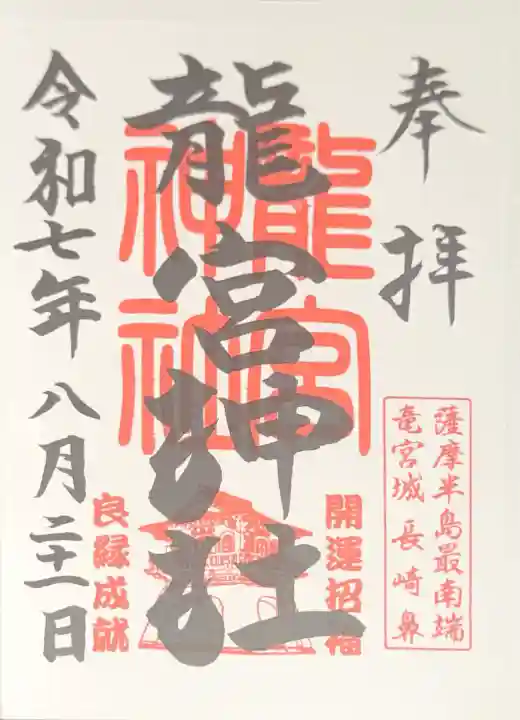 奉拝
薩摩半島最南端
竜宮城 長崎鼻
開運招福
龍宮神社
龍宮
神社
良縁成就
令和七年八月二十一日